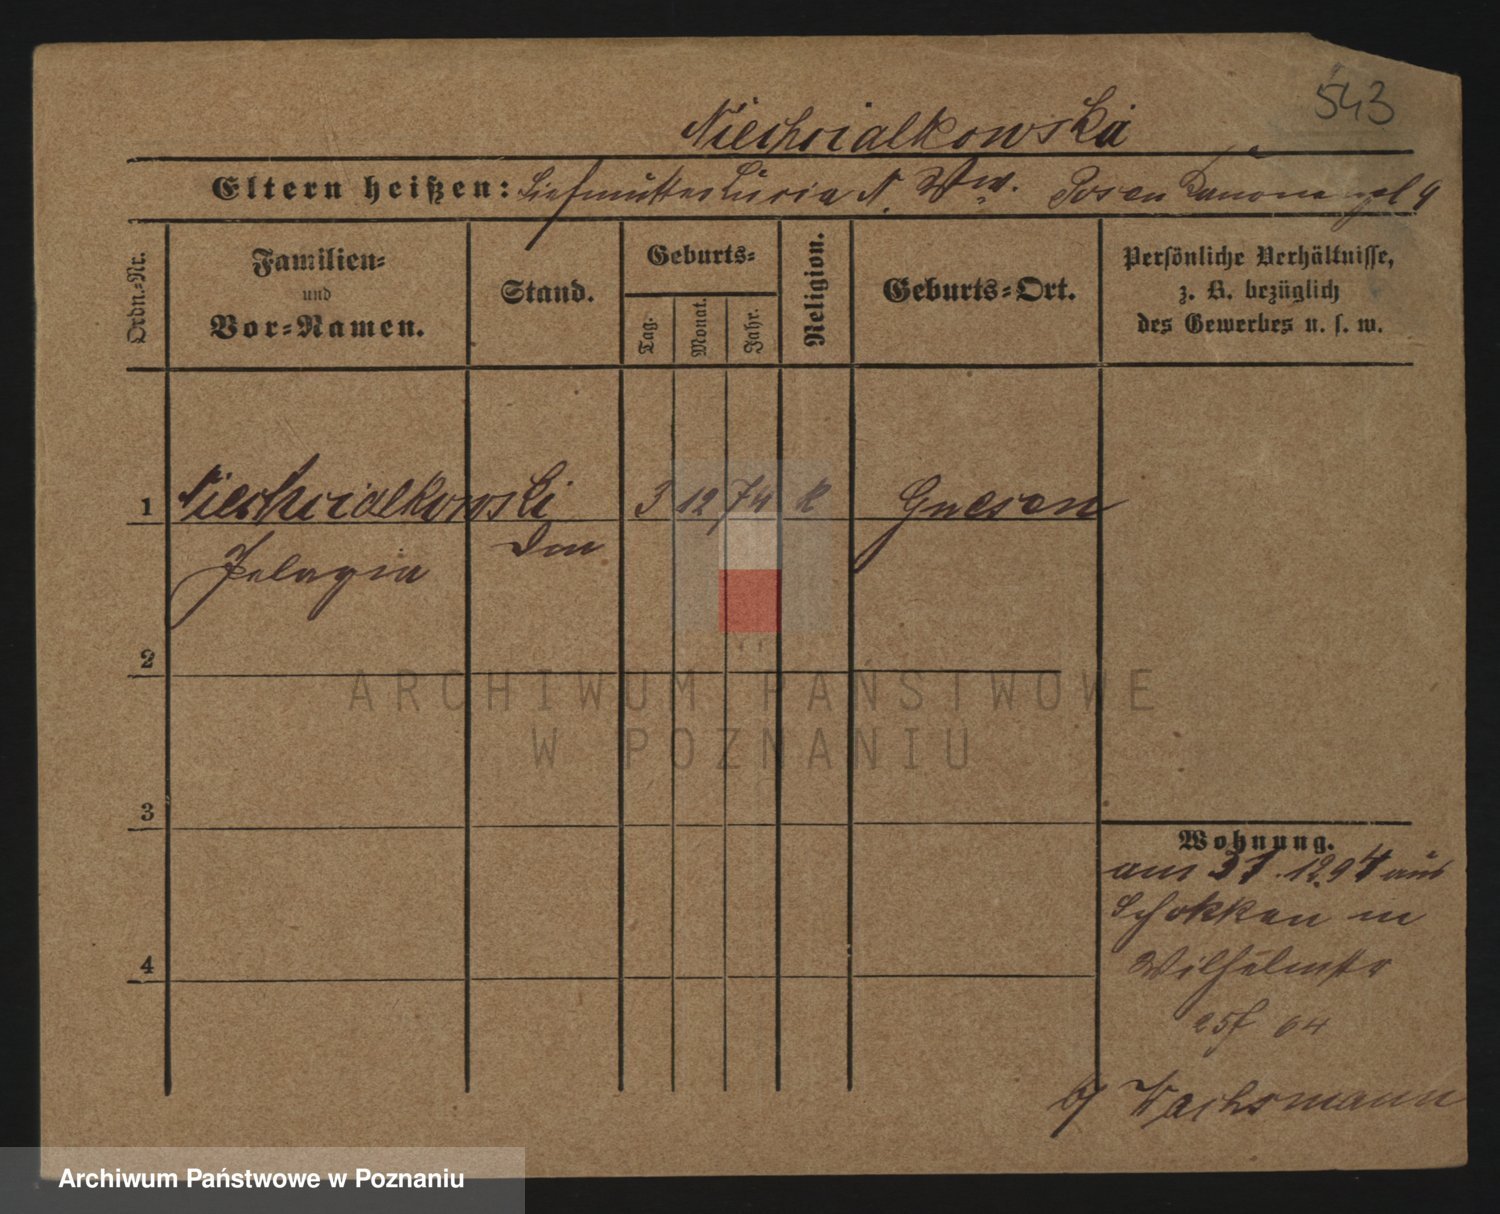 543
Niechcialkowska
Eltern heißen: Stiefmutter Lucia N. Ww. Posen Kanonenpl 9
Ordn.-Nr.
Familien-
und
Vor-Namen.
Stand.
Geburts-
Tag.
Monat.
Jahr.
Religion.
Geburts-Ort.
Persönliche Verhältnisse,
z. B. bezüglich
des Gewerbes u. s. w.
1 Niechcialkowski 3 12 74 K Gnesen
Pelagia
2
3
4
Wohnung.
am 31.12.94 aus
Schokken in
Wilhelmstr
25
b/ Wachsmann
ARCHIWUM PAŃSTWOWE
W POZNANIU
Archiwum Państwowe w Poznaniu